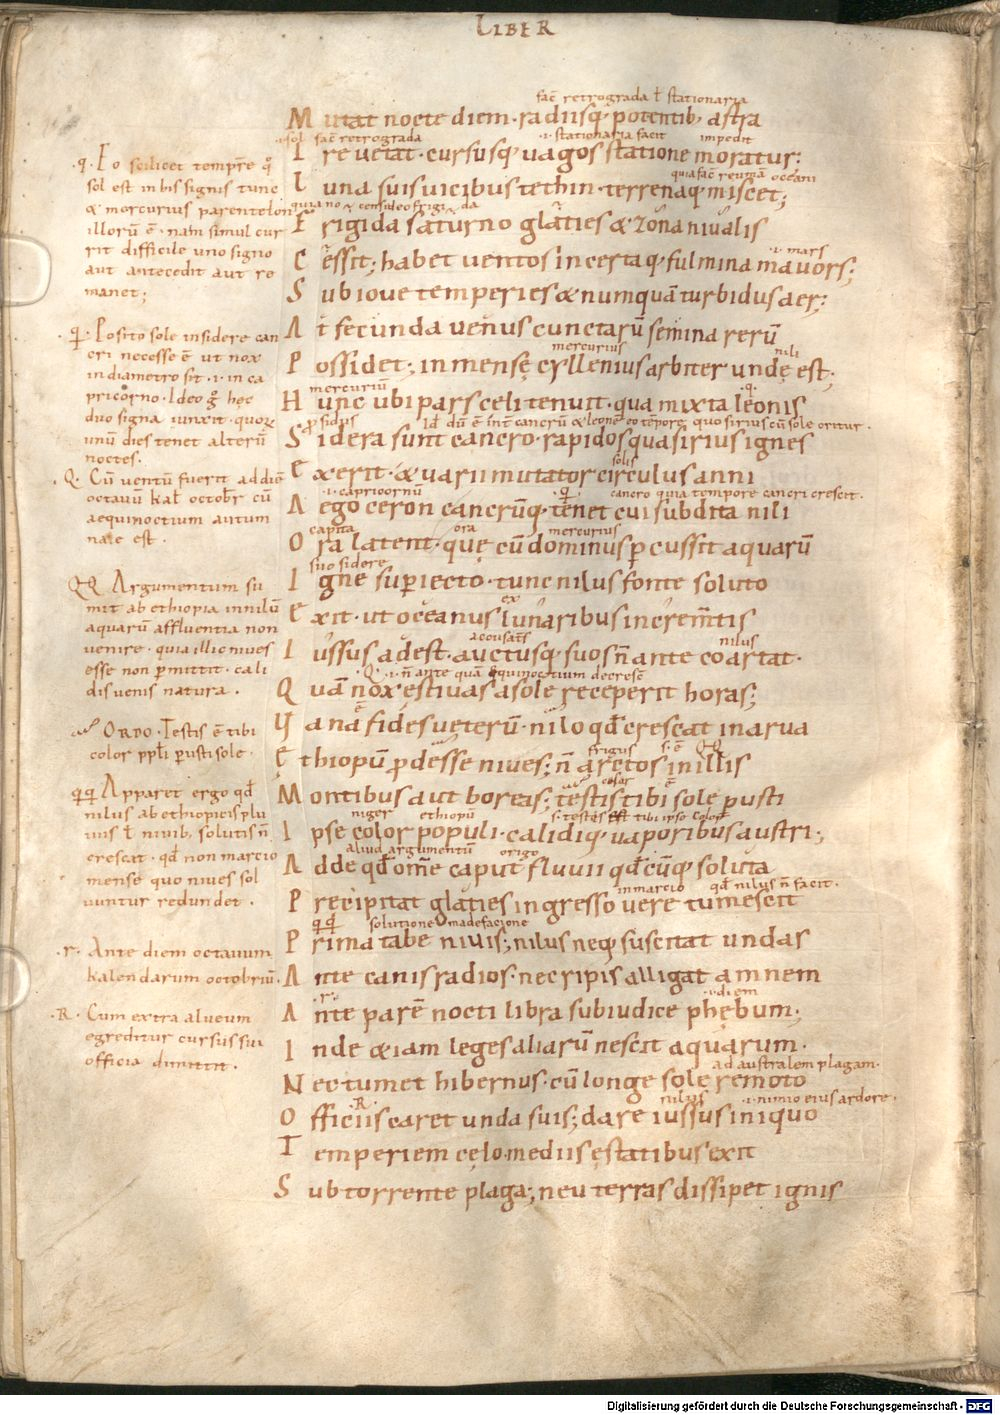 LIBER
fac̄ retrograda ł stationaria
Mutat nocte diem · radiisq; potentib; astra
sol fac̄ retrograda ·i· stationaria facit impedit
Ire uetat · cursusq; uagos statione moratur;
quia fac̄ reumā oceani
Luna suis uicibus tethin · terrenaq; miscet;
Frigida saturno glacies & zona niualis
Cessit; habet uentos incertaq; fulmina mauors;
·i· mars
Sub ioue temperies & numquā turbidus aer;
At fecunda uenus cunctarū semina rerū
mercurius nili
Possidet; inmensę cyllenius arbiter undę est;
mercuriū ·q·
Hunc ubi pars celi tenuit · qua mixta leonis
Sidera sunt cancro · rapidos qua sirius ignes
solis
Exerit · & uarii mutator circulus anni
·i· capricornū cancro quia tempore cancri crescit·
Aegoceron cancrūq; tenet cui subdita nili
capita ora mercurius
Ora latent · quę cū dominus p̄cussit aquarū
suo sidere
Igne sup̄iecto · tunc nilus fonte soluto
Exit · ut oceanus lunaribus increm̄tis
nilus
Iussus adest · auctusq; suos n̄ ante coartat·
·Q· ·i· n̄ ante quā equinoctium decresc̄
Quā nox estiuas a sole receperit horas;
Vana fides ueterū · nilo qđ crescat in arua
frigus QQ
Ethiopū p̄desse niues; n̄ arctos in illis
color
Montibus aut boreas; testis tibi sole p̄usti
niger ethiopū
Ipse color populi · calidiq; uaporibus austri;
aliud argumentū origo
Adde qđ om̄e caput fluuii qđcūq; soluta
in marcio qđ nilus n̄ facit·
Precipitat glacies ingresso uere tumescit
qq solutione madefacione
Prima tabe niuis; nilus neq; suscitat undas
Ante canis radios · nec ripis alligat amnem
·r· ·i· diem
Ante parē nocti libra sub iudice phębum;
Inde &iam leges aliarū nescit aquarum·
ad australem plagam·
Nec tumet hibernus · cū longe sole remoto
·R· nilus ·i· nimio eius ardore·
Officiis caret unda suis; dare iussus iniquo
Temperiem cęlo mediis ęstatibus exit
Sub torrente plaga; neu terras dissipet ignis
·q· Eo scilicet temp̄re q̄
sol est in his signis tunc
& mercurius parentelon
illorū ē · nam simul cur
rit difficile uno signo
aut antecedit aut re
manet;
Posito sole in sidere can
cri necesse ē ut nox
in diametro sit ·i· in ca
pricorno · Ideo g̊ hęc
duo signa iunxit · quorꝫ
unū dies tenet alterū
noctes·
·Q· Cū uentū fuerit ad diē
octauū kał octobr̄ cū
aequinoctium autum
nale est ·
QQ Argumentum su
mit ab ethiopia in nilū
aquarū affluentia non
uenire · quia illic niues
esse non p̄mittit · cali
dis uenis natura ·
ORDO · Testis ē tibi
color pp̄li p̄usti sole ·
qq Apparet ergo qđ
nilus ab ethiopicis plu
uiis ł niuib; solutis n̄
crescat · qđ non marcio
mense quo niues sol
uuntur redundet ·
·r· Ante diem octauum
kalendarum octobriū·
·R· Cum extra alueum
egreditur cursus sui
officia dimittit ·
Digitalisierung gefördert durch die Deutsche Forschungsgemeinschaft - DFG